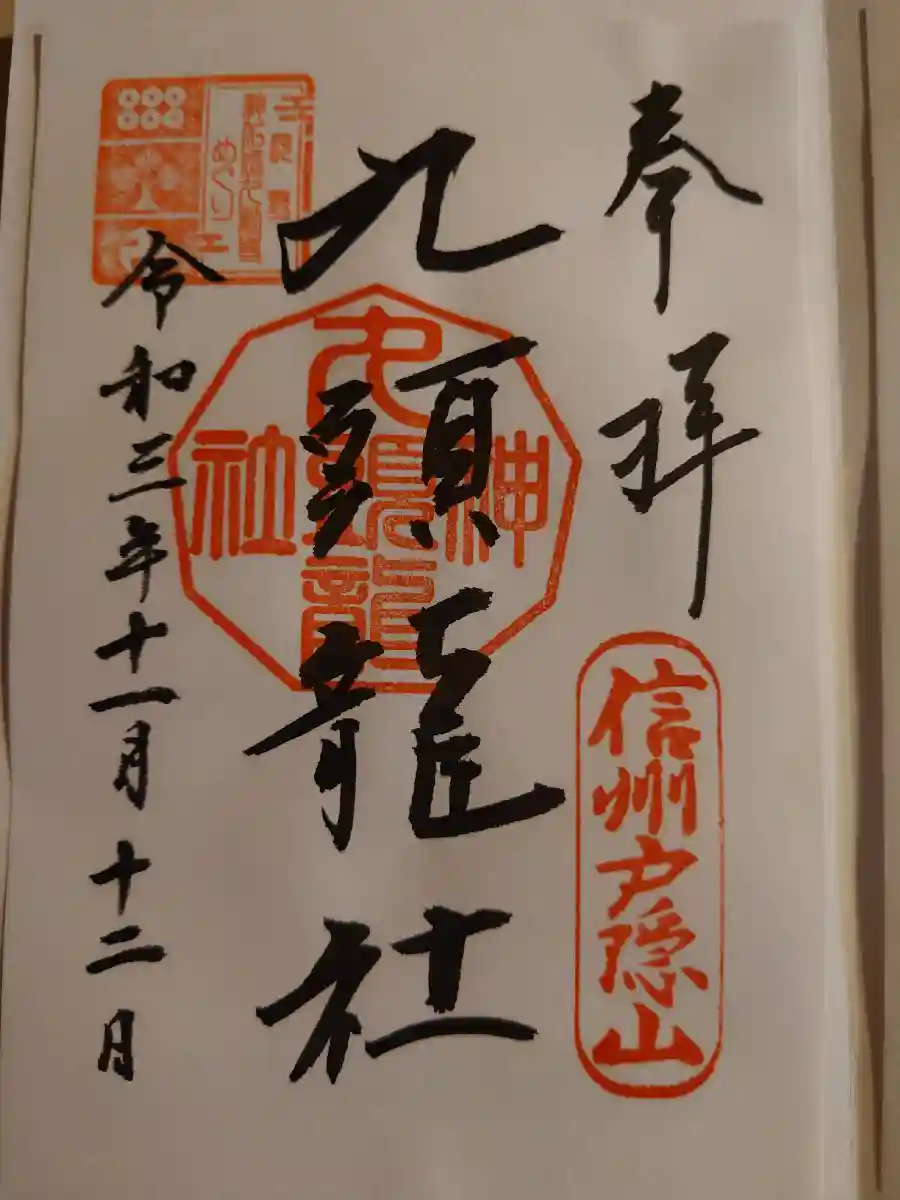 奉拝
信州戸隠山
九頭龍社
九頭龍
神社
めぐり
令和三年十一月十二日